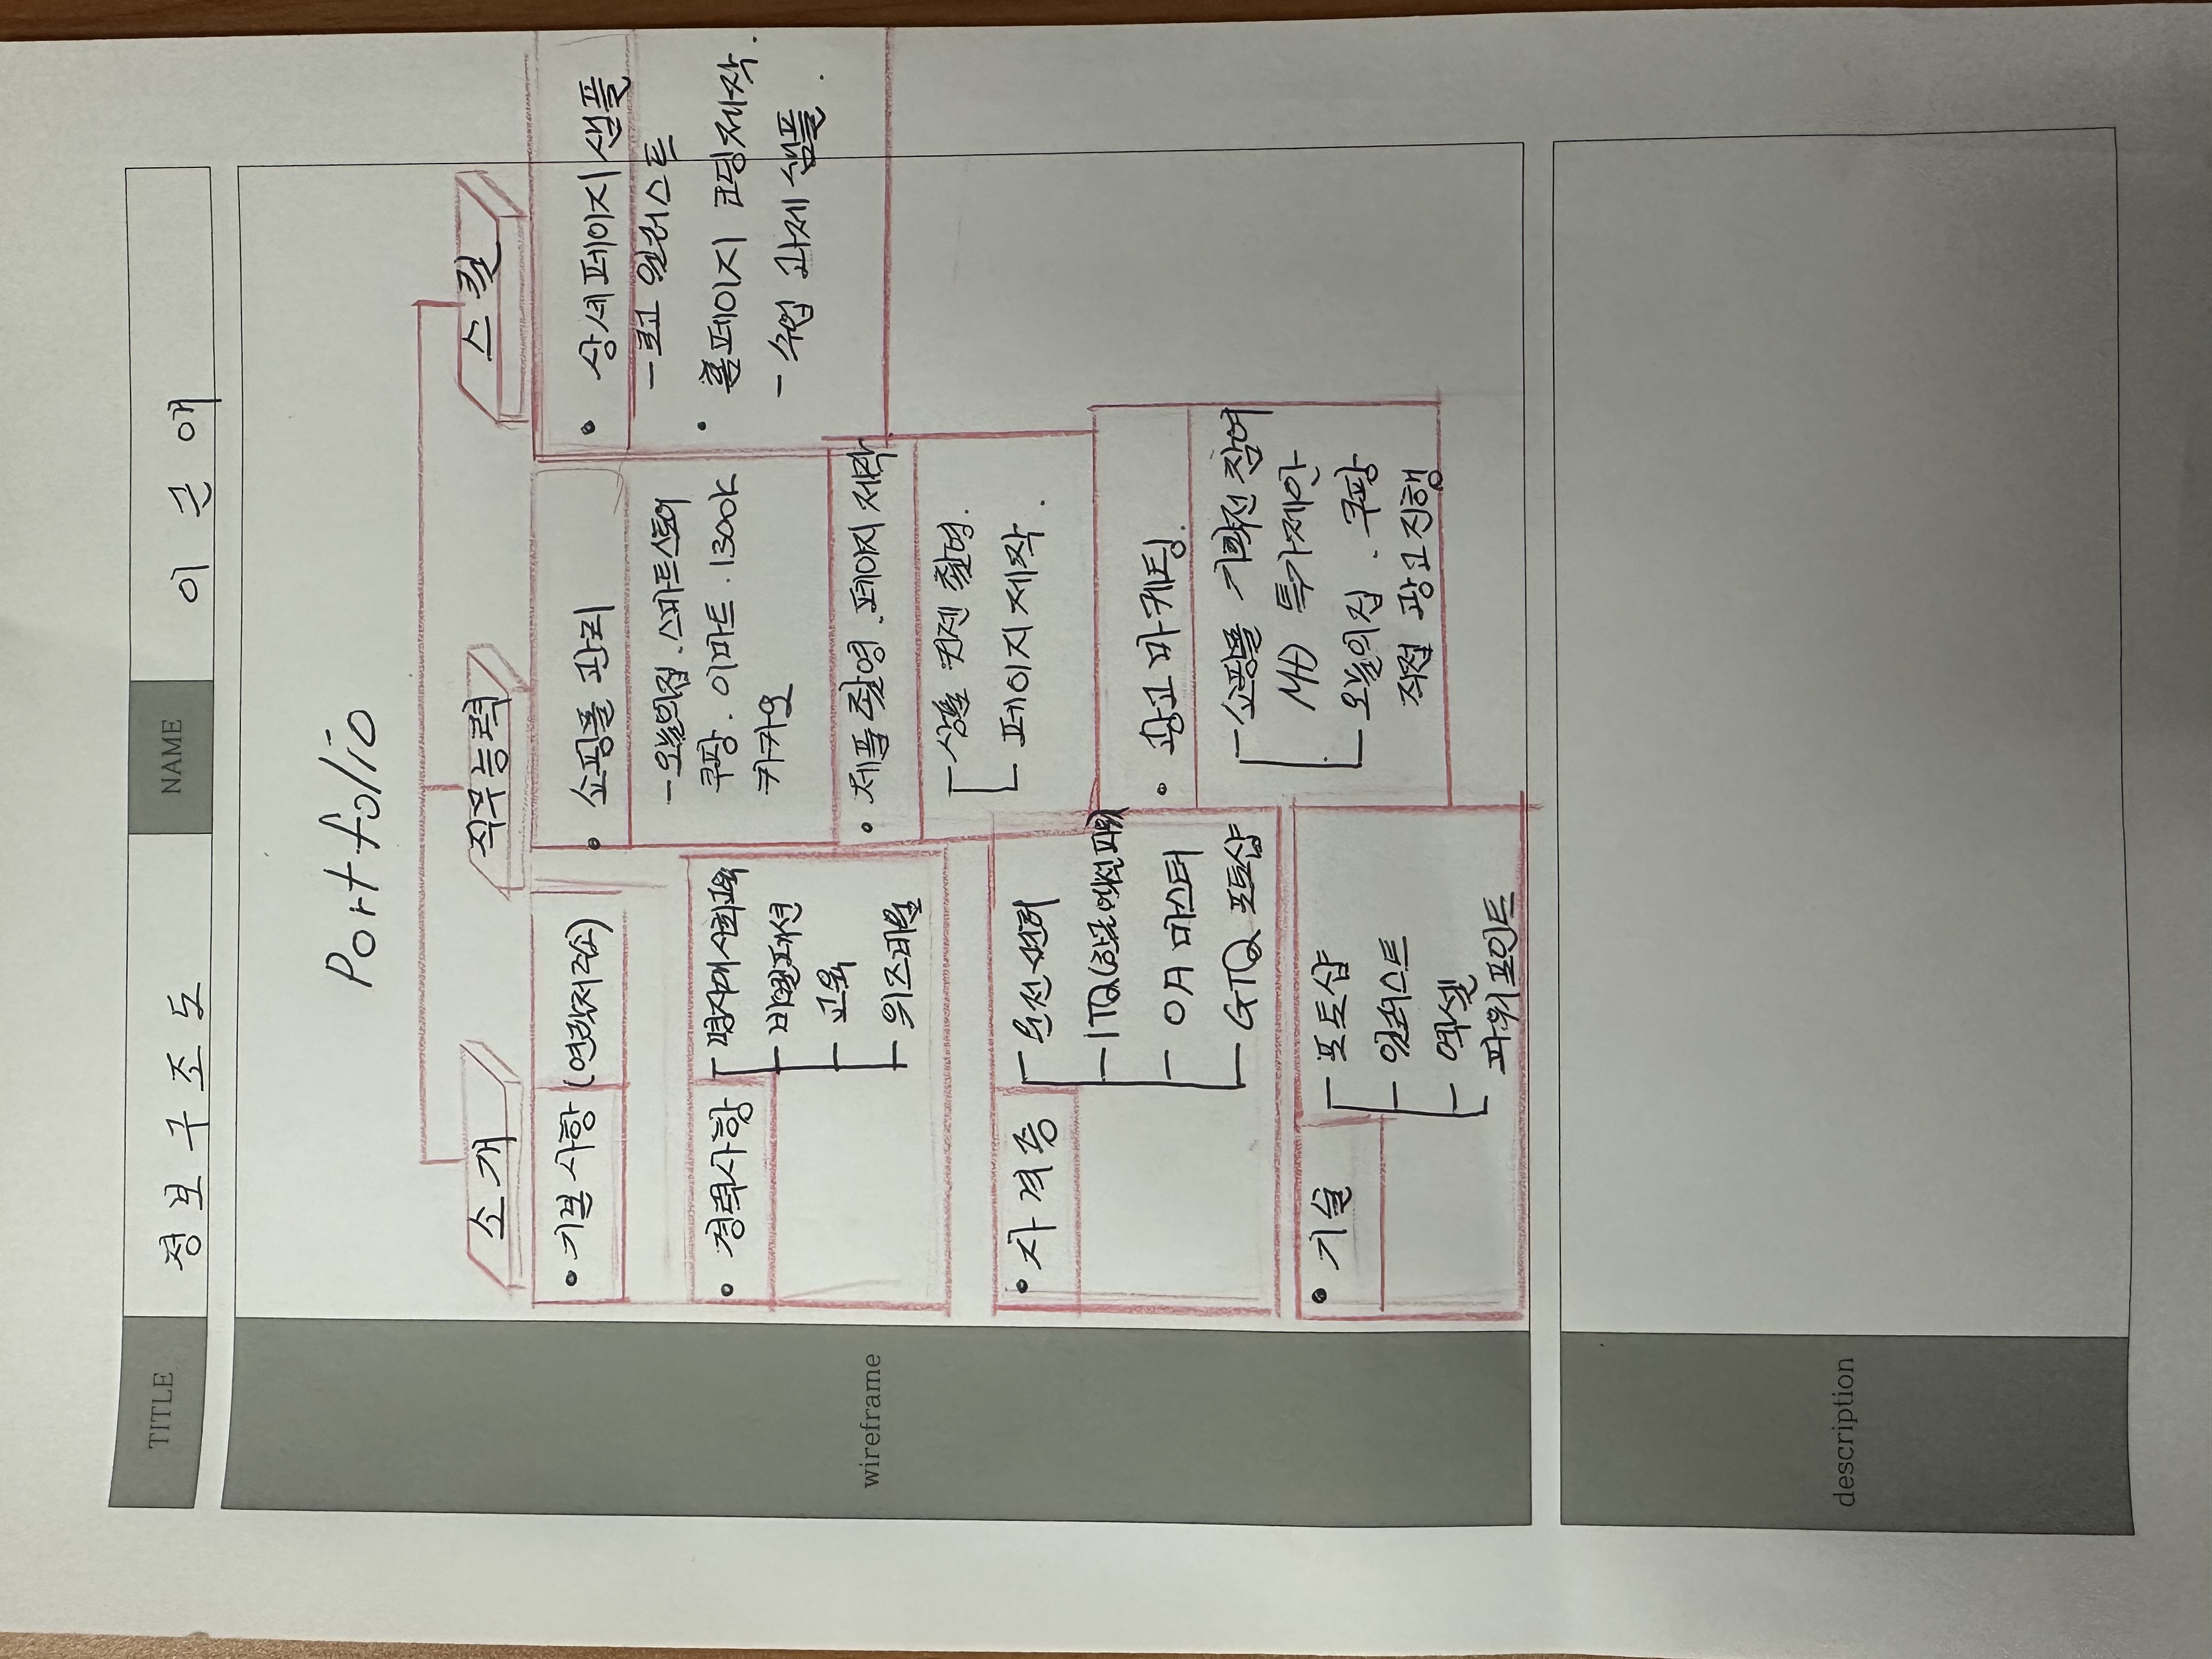 TITLE
정보구조도
NAME
이근애
wireframe
Portfolio
소개
• 기본 사항 (연락처 주소)
• 경력사항
명지대 사회교육
패션
교육
위즈
• 자격증
운전면허
ITQ(한글 엑셀 파워)
OA 마스터
GTQ 포토샵
• 기술
포토샵
일러스트
엑셀
파워포인트
직무능력
• 쇼핑몰 관리
- 오늘의집 . 스마트스토어
쿠팡 . 이마트 . 1300k
카카오
• 제품 촬영 . 페이지 제작
상품 촬영.
페이지 제작.
• 광고 마케팅.
쇼핑몰 기획전 참여
MD 특가제안
오늘의집 . 쿠팡
직접 광고진행
스킬
• 상세페이지 샘플
- 로고 일러스트
• 홈페이지 코딩제작.
- 수업 과제 샘플.
description